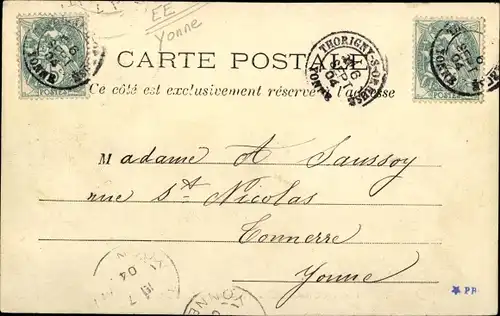 EE
Yonne
CARTE POSTALE
Ce côté est exclusivement réservé à l'adresse
THORIGNY-S-OREUSE
YONNE
6
04
POSTES
POSTES
Madame A Saussoy
rue St Nicolas
Tonnerre
Yonne
7
04
YONNE
PR